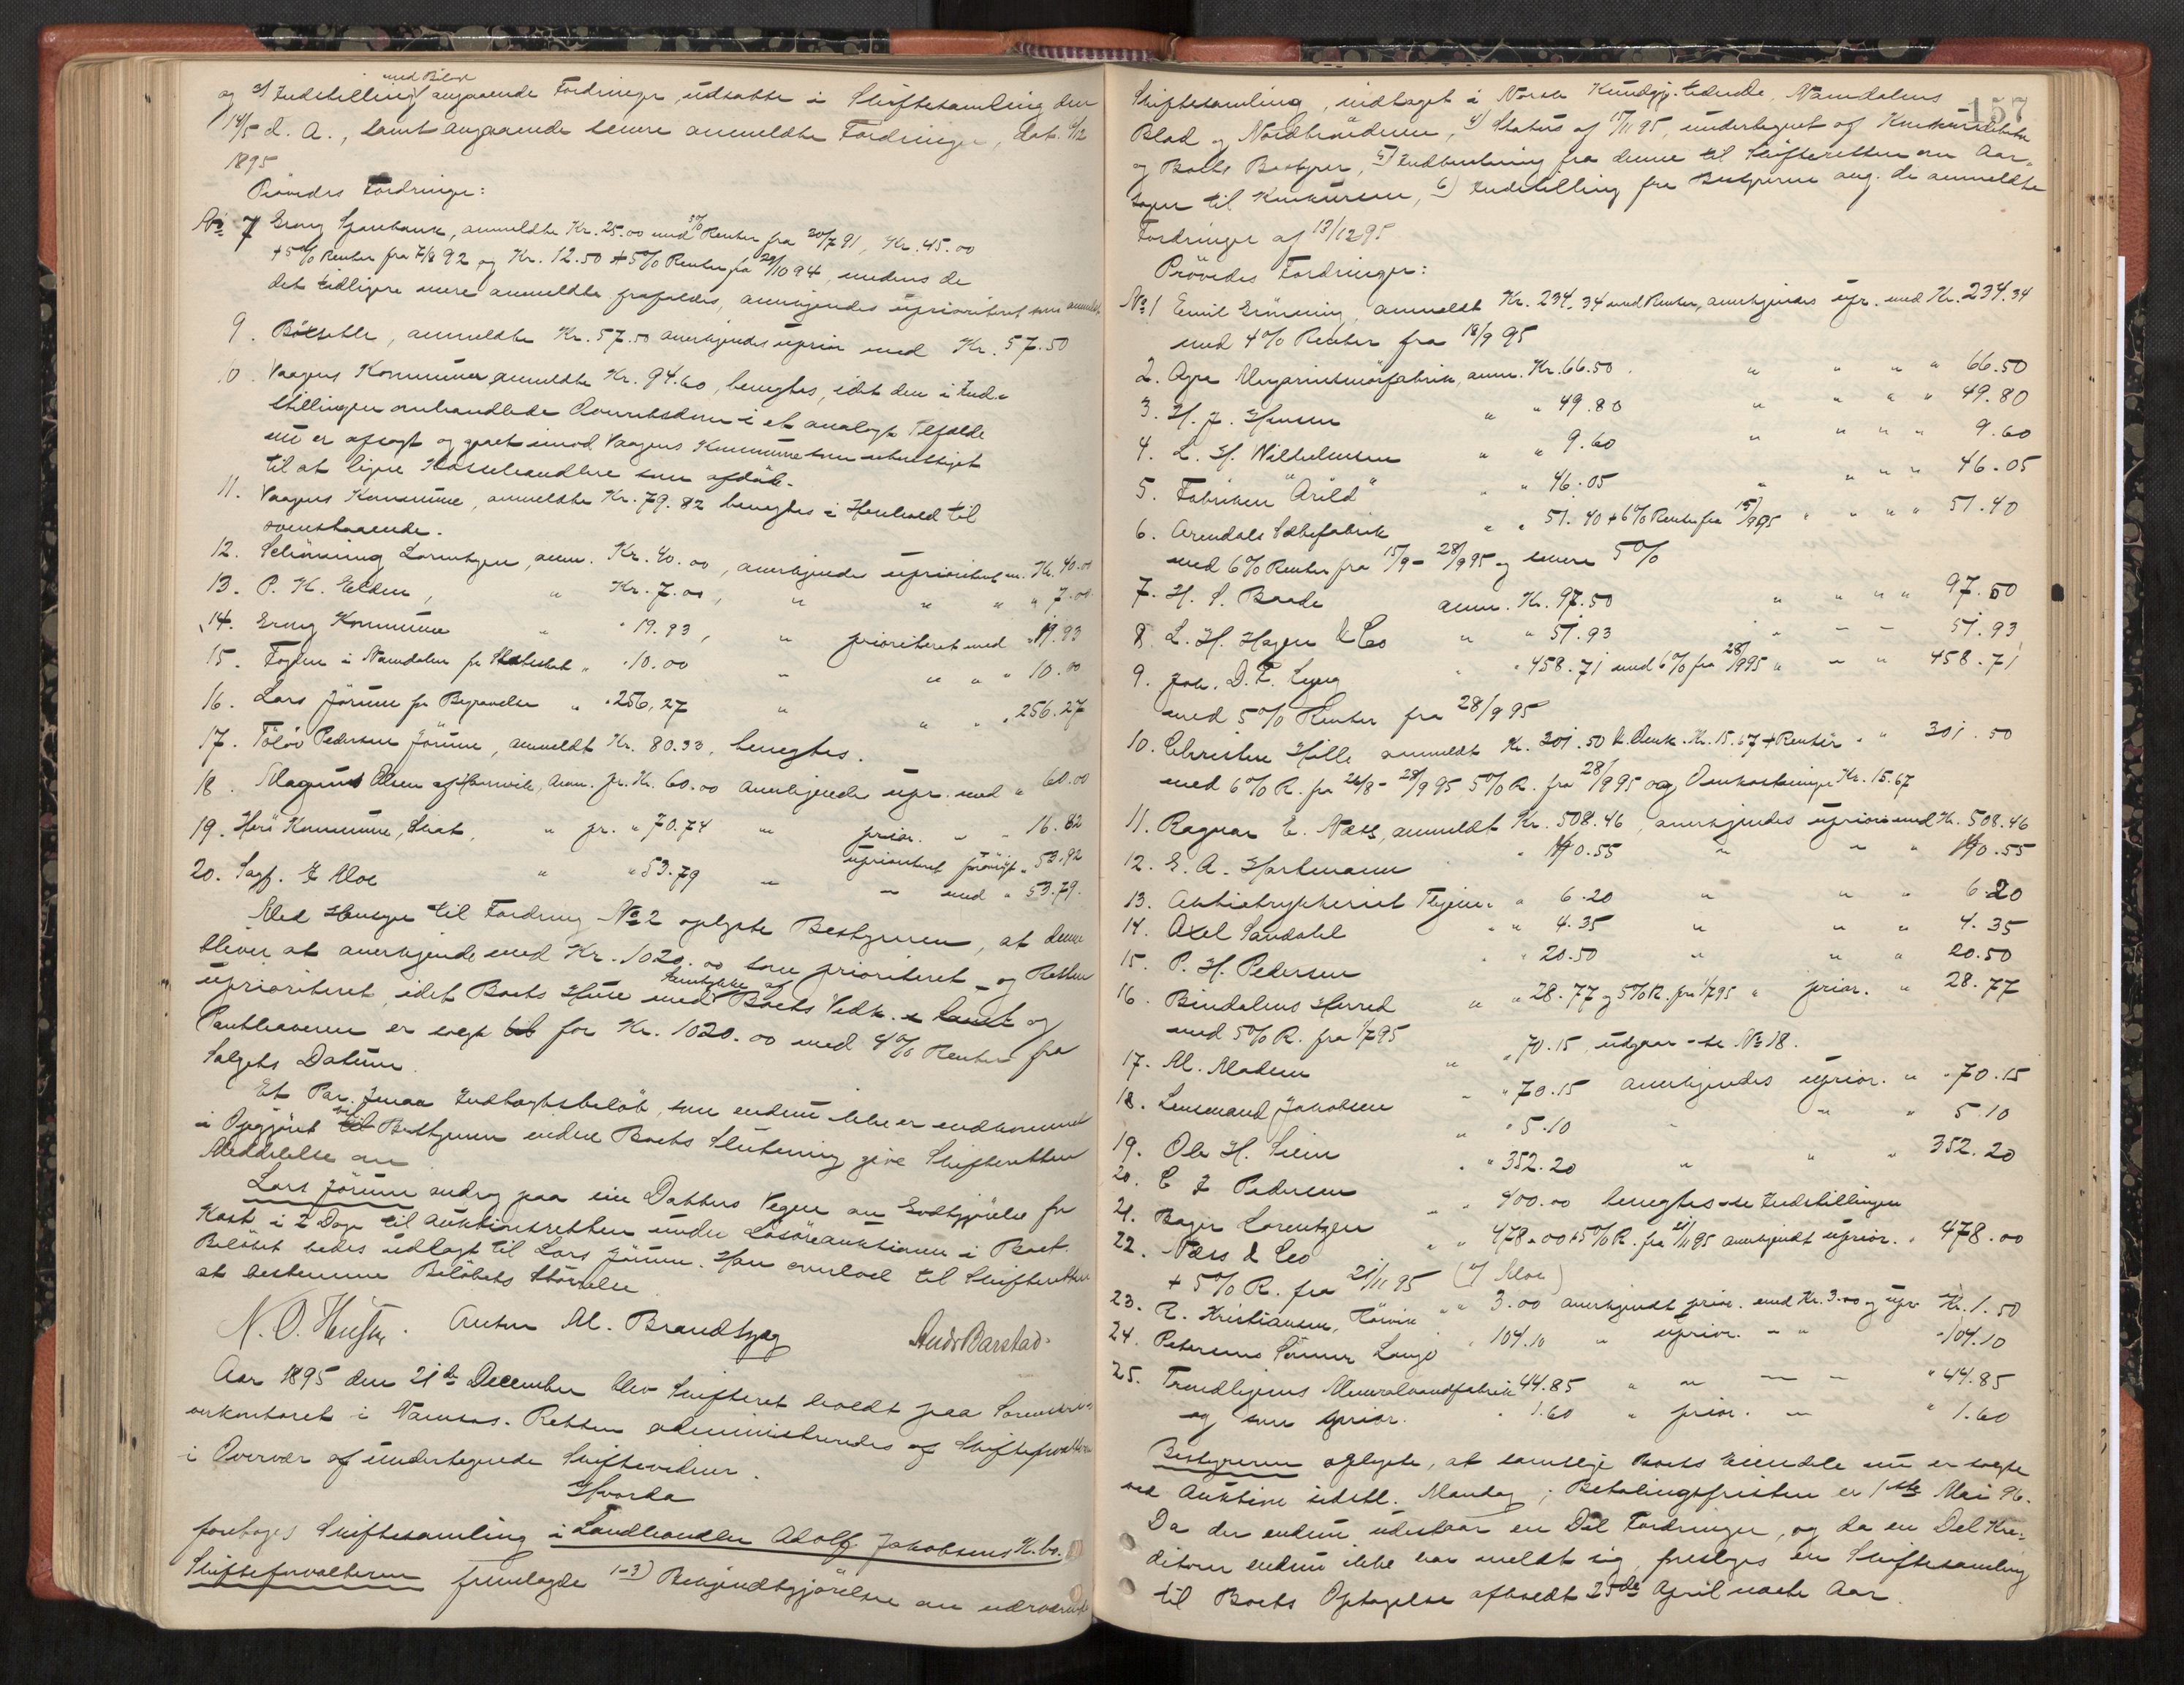 og 2) Indstilling med Bilag angaaende Fordringer, udsatte i Skiftesamling den
14/5 d. A., samt angaaende senere anmeldte Fordringer, dat. 4/12
1895
Prövedes Fordringer:
No 7 Grong Sparebank, anmeldte Kr. 25.00 med 5% Renter fra 20/7 91, Kr. 45.00
+ 5% Renter fra 7/8 92 og Kr. 12.50 + 5% Renter fra 20/10 94, medens de
det tidligere mere anmeldte frafaldes, anerkjendes uprioriteret som anmeldt
9. anmeldte Kr. 57.50 anerkjendes uprior med Kr. 57.50
10. Vaagens Kommune anmeldte Kr. 94.60, benegtes, idet den i Ind-
stillingen omhandlede i et analogt Tilfælde
nu er afsagt og gaaet imod Vaagens Kommune som uberettiget
til at ligne som afdöde.
11. Vaagens Kommune, anmeldte Kr. 79.82 benegtes i Henhold til
ovenstaaende.
12. Schönning Lorentzen, anm. Kr. 40.00, anerkjendes uprioriteret m. Kr. 40.00
13. P. K. Elden, " Kr. 7.00, " " " " 7.00
14. Grong Kommune " " 19.93, " prioriteret med " 19.93
15. Fogden i Namdalen for Skat " 10.00 " " " " 10.00
16. Lars Jörum for Begravelse " 256,27 " " " " 256.27
17. Pedersen Jörum, anmeldt Kr. 80.33, benegtes.
18. Magnus Olsen anm. pr. Kr. 60.00 anerkjendes upr. med " 60.00
19. Herö Kommune, Skat, " pr. " 70.74 " prior. " " 16.82
uprioriteret forövrigt " 53.92
20. Sagf. J Moe " " 53.79 " " med " 53.79.
Med Hensyn til Fordring No 2 oplyste Bestyreren, at denne
bliver at anerkjende med Kr. 1020.00 som prioriteret - og Resten
uprioriteret, idet Boets Huse med Samtykke af Boets Vedk. og
Panthaveren er solgt for Kr. 1020.00 med 4% Renter fra
Salgets Datum.
Et Par smaa Indtægtsbelöb, som endnu ikke er indkommet
i Opgjöret vil Bestyreren inden Boets Slutning give Skifteretten
Meddelelse om
Lars Jörum androg paa sin Datters Vegne om Godtgjörelse for
Kost i 2 Dage til Auktionsretten under Lösöreauktionen i Boet.
Belöbet bedes udlagt til Lars Jörum. Han overlod til Skifteretten
at bestemme Belöbets Störrelse
Anton M. Brandtzæg Andr Barstad.
Aar 1895 den 21de December blev Skifteret holdt paa Sorenskri-
verkontoret i Namsos. Retten administreredes af Skifteforvalteren
i Overvær af undertegnede Skiftevidner.
Hvorda
foretoges Skiftesamling i Landhandler Adolf Jakobsens K.bo.
Skifteforvalteren fremlagde 1-3) Bekjendtgjörelse om nærværende
157
Skiftesamling, indtaget i Norsk Kundgj.tidende, Namdalens
Blad og Nordtrönderen, 4) Status af 15/11 95, undertegnet af Konkursdebitor
og Boets Bestyrer, 5) Indberetning fra denne til Skifteretten om Aar-
sagen til Konkursen, 6) Indstilling fra Bestyreren ang. de anmeldte
Fordringer af 13/12 95
Prövedes Fordringer:
No 1 Emil Grönning, anmeldt Kr. 234.34 med Renter, anerkjendes upr. med Kr. 234.34
med 4% Renter fra 18/9 95
2. Agra Margarinsmörfabrik, anm. Kr. 66.50 " " " " 66.50
3. H. J. Hansen " " 49.80 " " " " 49.80
4. L. H. Wilhelmsen " " 9.60 " " " " 9.60
5. Fabriken "Arild" " " 46.05 " " " " 46.05
6. Arendals Sæbefabrik " " 51.40 + 6% Renter fra 15/9 95 " " " " 51.40
med 6% Renter fra 15/9 - 28/9 95 og senere 5%
7. H. S. Baade anm. Kr. 97.50 " " " " 97.50
8. L. H. Hagen & Co " " 51.93 " " " 51.93
9. Joh. D. F. Lyng " " 458.71 med 6% fra 28/9 95 " " " 458.71
med 5% Renter fra 28/9 95
10. Christen Hille anmeldt Kr. 301.50 Kr. 15.67 + Renter " " 301.50
med 6% R. fra 26/8 - 28/9 95 5% R. fra 28/9 95 og Omkostninger Kr. 15.67
11. Ragnar E. Næss, anmeldt Kr. 508.46, anerkjendes uprior med Kr. 508.46
12. E. A. Hartmann " " 190.55 " " " 190.55
13. Aktietrykkeriet Thjem " 6.20 " " " 6.20
14. Axel Sandahl " " 4.35 " " " 4.35
15. P. H. Pedersen " " 20.50 " " " 20.50
16. Bindalens Herred " " 28.77 og 5% R. fra 1/7 95 " prior. " 28.77
med 5% R. fra 1/7 95
17. M. Madsen " " 70.15, udgaar - se No 18.
18. Lensmand Jakobsen " " 70.15 anerkjendes uprior. " " 70.15
19. Ole H. Seim " " 5.10 " " " 5.10
20. C J Pedersen " " 352.20 " " " 352.20
21. Lorentzen " " 400.00 benegtes - se Indstillingen
22. Næss & Co " " 478.00 + 5% R. fra 21/11 95 anerkjendt uprior. " 478.00
+ 5% R. fra 21/11 95 (v/ Moe)
23. R. Kristiansen, " " 3.00 anerkjendt prior. med Kr. 3.00 og upr. Kr. 1.50
24. Petersens Sönner " 104.10 " uprior. " " " 104.10
25. Trondhjems Mineralvandfabrik 44.85 " " " " 44.85
og som prior. " 1.60 " prior. " " 1.60
Bestyreren oplyste, at samtlige Boets Eiendele nu er solgte
ved Auktion sidstl. Mandag; Betalingsfristen er 1ste Mai 96.
Da der endnu udestaar en Del Fordringer, og da en Del Kre-
ditorer endnu ikke har meldt sig, foresloges en Skiftesamling
til Boets Optagelse afholdt 25de April næste Aar.